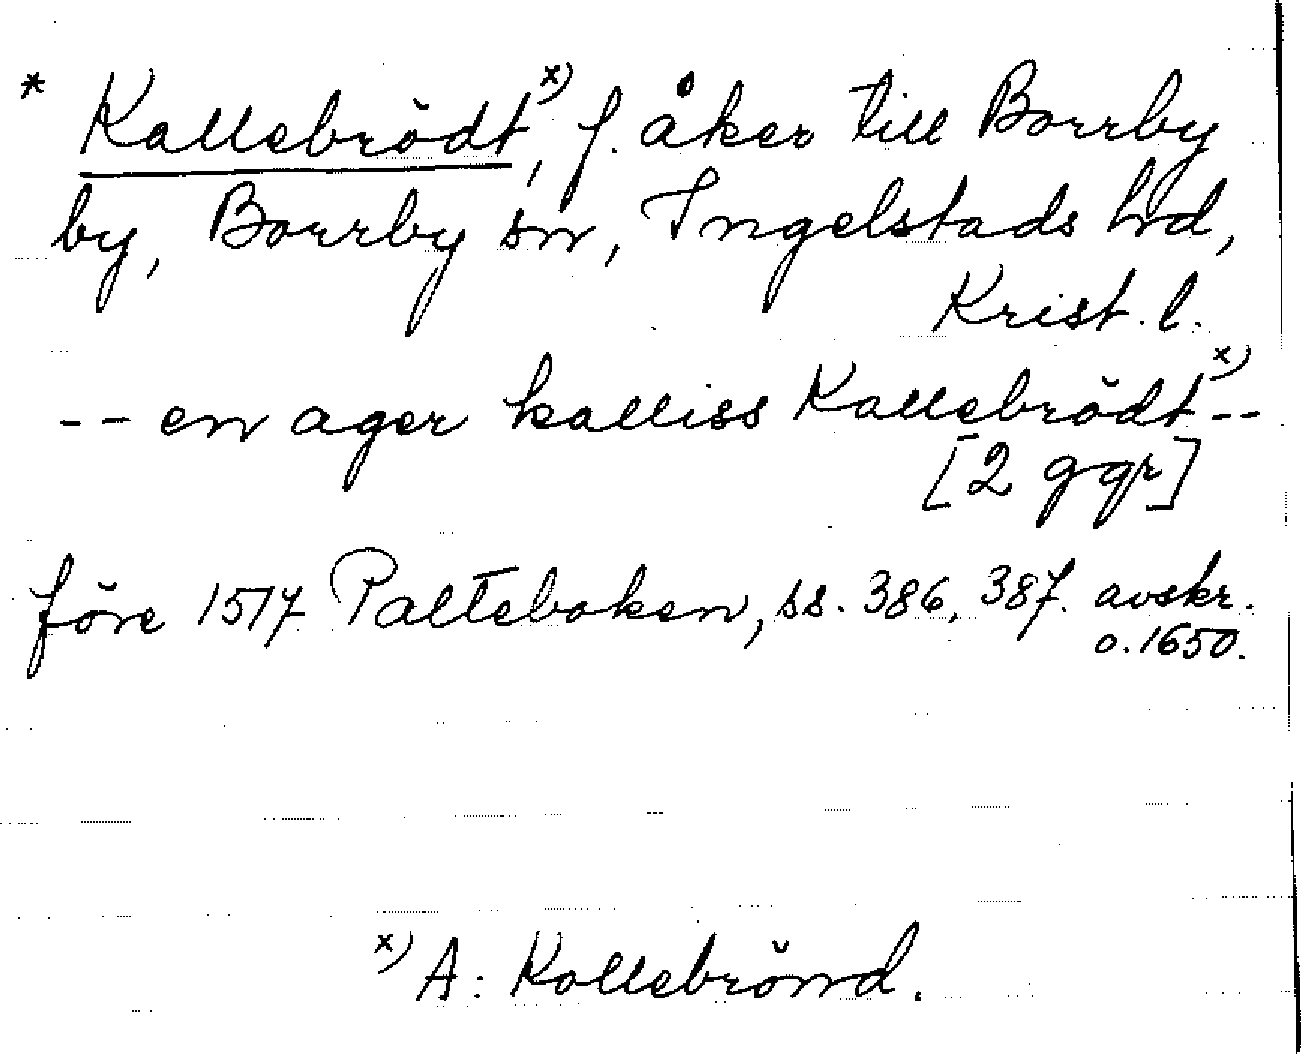 * Kallebrödt x), f. åker till Borrby
by, Borrby sn, Ingelstads hd,
Krist. l.
-- en ager kalliss Kallebrödt x) --
[2 ggr]
före 1517 Palteboken, ss. 386, 387. avskr.
o. 1650.
x) A: Kollebrönd.